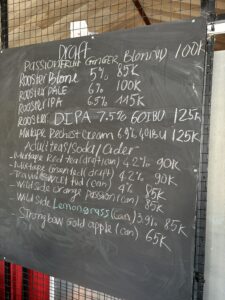 Draft
Passionfruit Ginger Blonde 100K
Rooster Blone 5% 85K
Rooster PALE 6% 100K
Rooster IPA 6.5% 115K
Rooster DIPA 7.5% 60IBU 125K
Mixtape Cream 6.9% 40IBU 125K
Adultteas/Soda/Cider
- Mixtape Red tea (draft/can) 4.2% 90K
- Mixtape Green tea (draft) 4.2% 90K
- (can) 4% 85K
- Wild Side orange passion (can) 85K
- Wild Side Lemongrass (can) 3.9% 85K
- Strongbow gold apple (can) 65K